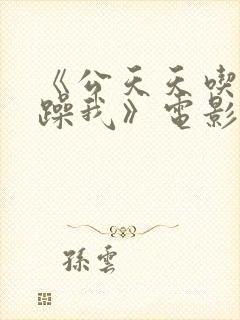 《公天天喫我
躁我》電影
孫雲